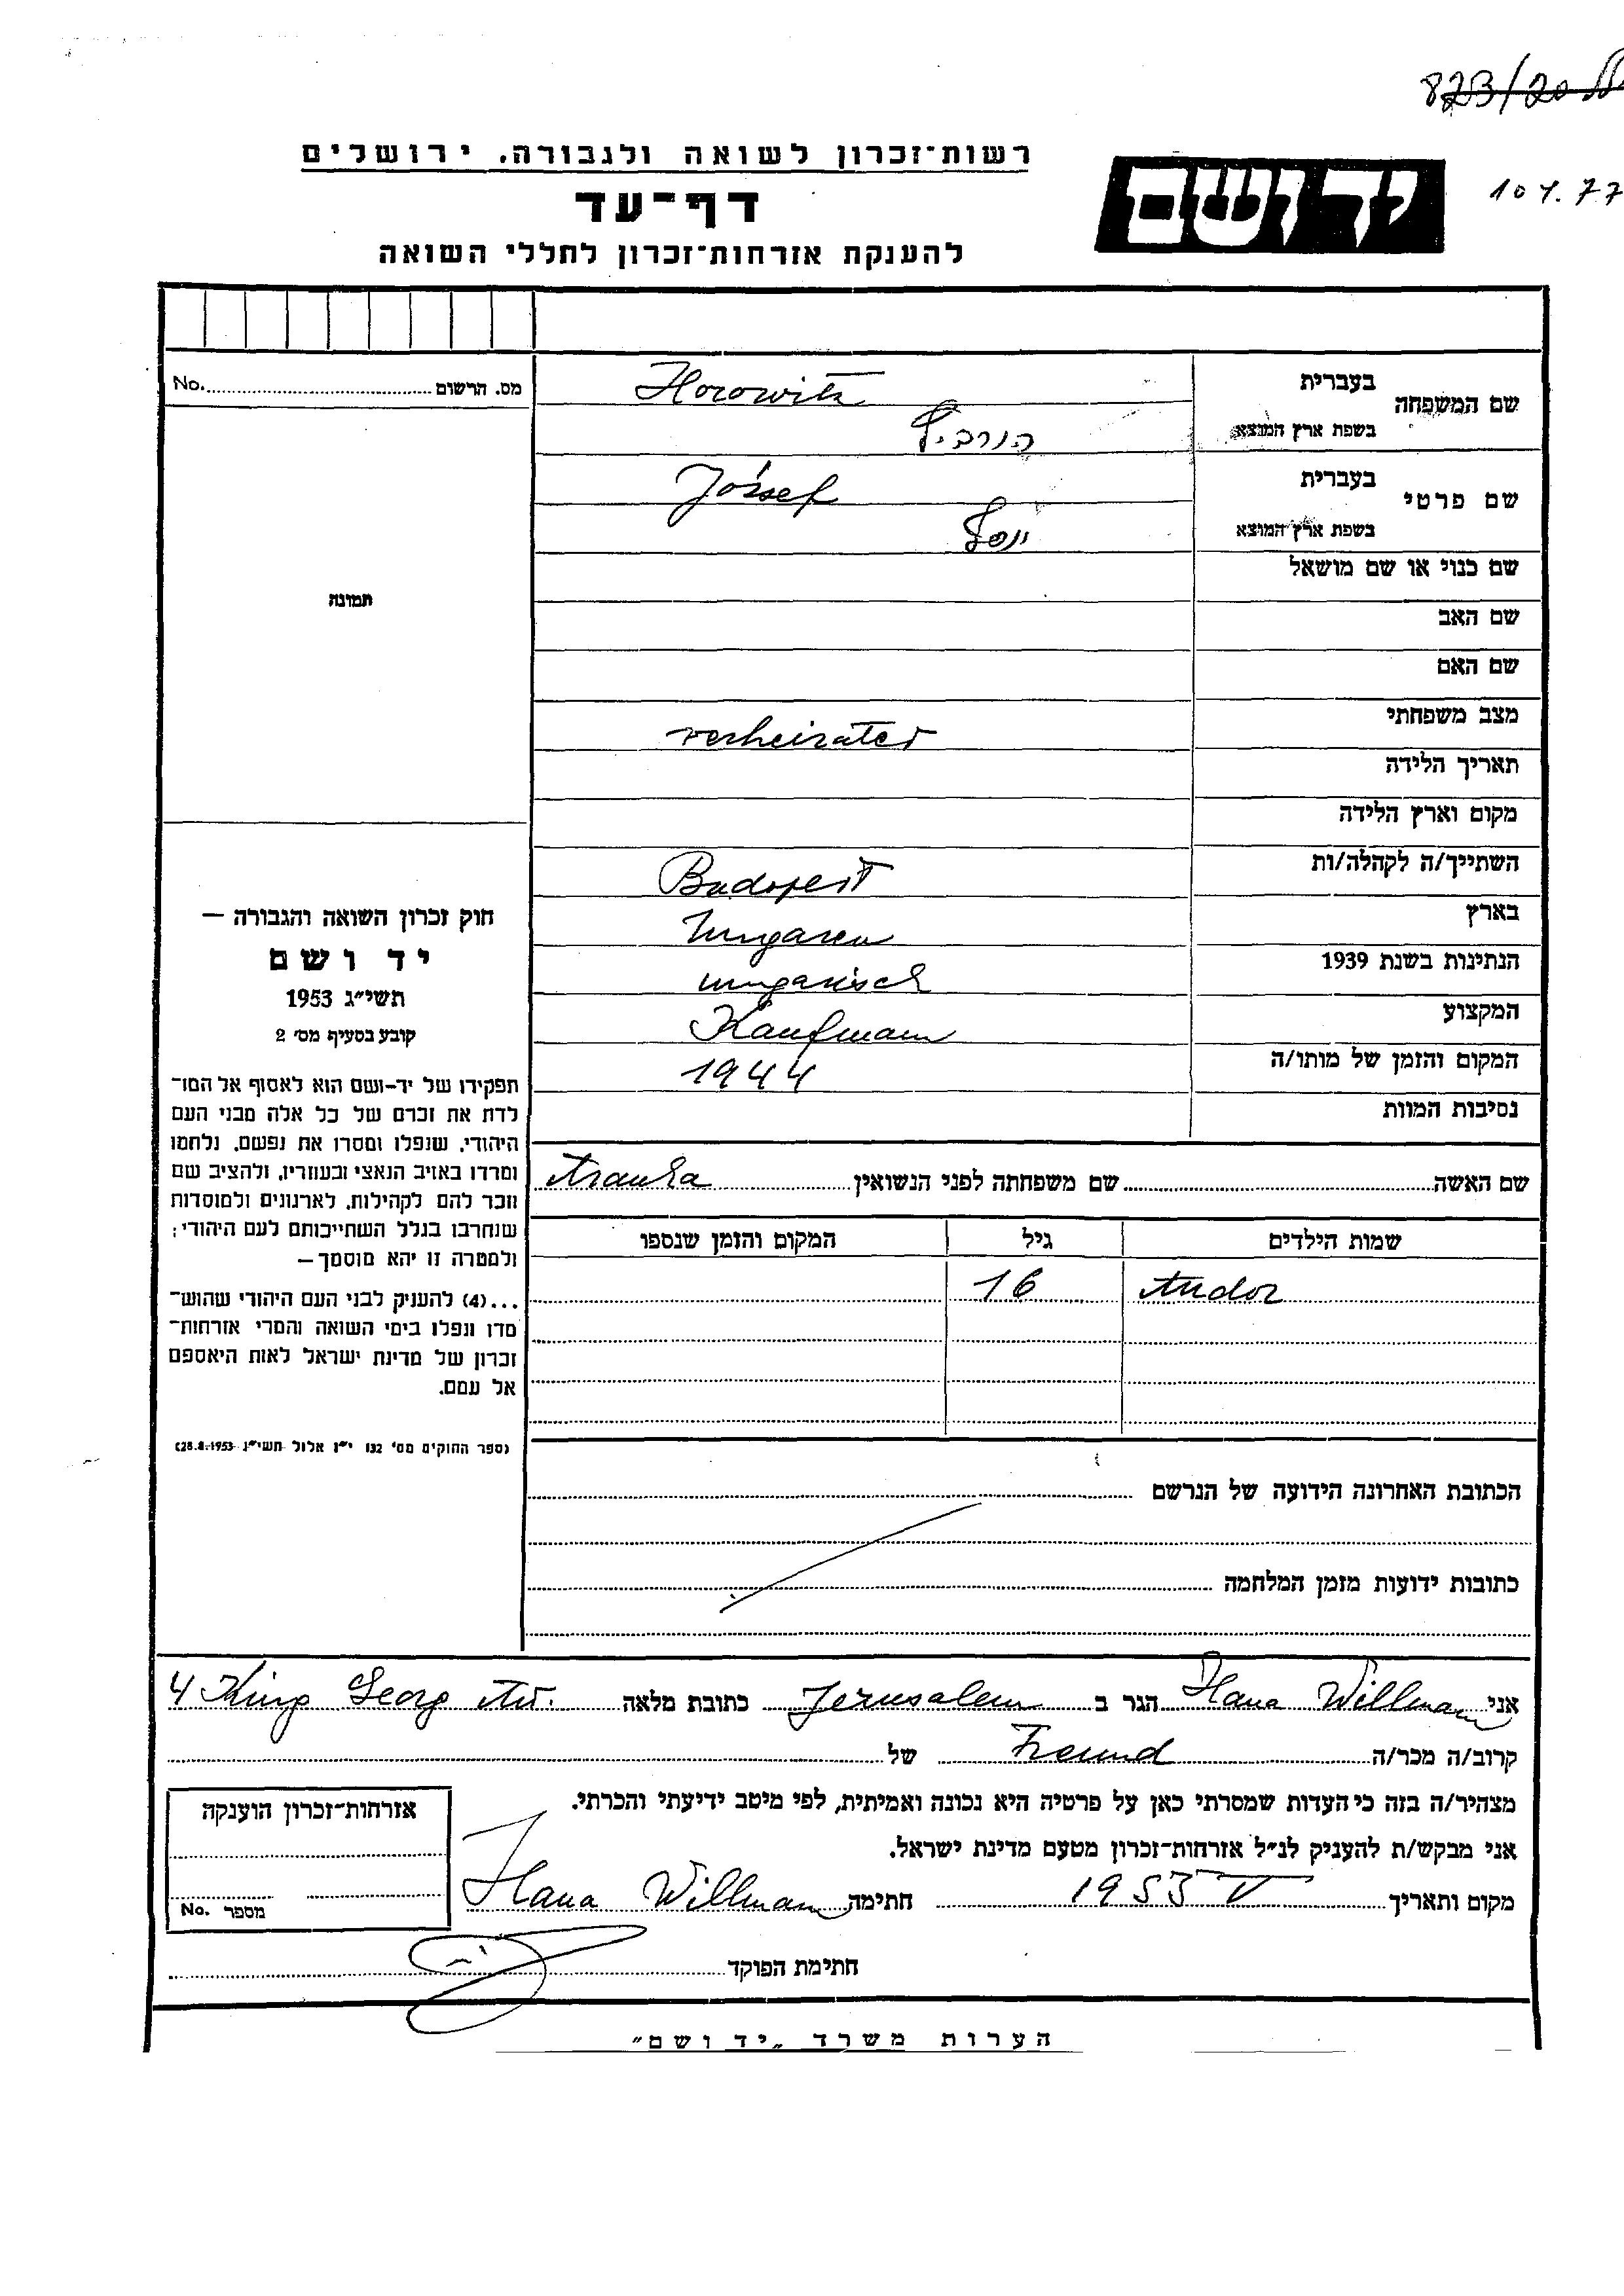 823/20
רשות־זכרון לשואה ולגבורה, ירושלים
ידושם
דף־עד
להענקת אזרחות־זכרון לחללי השואה
מס. הרשום No.
תמונה
שם המשפחה בעברית Horowitz
בשפת ארץ המוצא הורביץ
שם פרטי בעברית József
בשפת ארץ המוצא יוסף
שם כנוי או שם מושאל
שם האב
שם האם
מצב משפחתי verheiratet
תאריך הלידה
מקום וארץ הלידה
השתייך/ה לקהלה/ות Budapest
בארץ Ungaren
הנתינות בשנת 1939 ungarisch
המקצוע Kaufmann
המקום והזמן של מותו/ה 1944
נסיבות המוות
חוק זכרון השואה והגבורה —
יד ושם
תשי״ג 1953
קובע בסעיף מס׳ 2
תפקידו של יד-ושם הוא לאסוף אל המו־
לדת את זכרם של כל אלה מבני העם
היהודי, שנפלו ומסרו את נפשם, נלחמו
ומרדו באויב הנאצי ובעוזריו, ולהציב שם
וזכר להם לקהילות, לארגונים ולמוסדות
שנחרבו בגלל השתייכותם לעם היהודי;
ולמטרה זו יהא מוסמך —
...(4) להעניק לבני העם היהודי שהוש־
מדו ונפלו בימי השואה והמרי אזרחות־
זכרון של מדינת ישראל לאות היאספם
אל עמם.
(ספר החוקים מס׳ 132 י״ז אלול תשי״ג 28.8.1953)
שם האשה שם משפחתה לפני הנשואין Aranka
שמות הילדים גיל המקום והזמן שנספו
Andor 16
הכתובת האחרונה הידועה של הנרשם
כתובות ידועות מזמן המלחמה
אני Hana Willman הגר ב Jerusalem כתובת מלאה 4 King Georg Av.
קרוב/ה מכר/ה Freund של
מצהיר/ה בזה כי העדות שמסרתי כאן על פרטיה היא נכונה ואמיתית, לפי מיטב ידיעתי והכרתי.
אני מבקש/ת להעניק לנ״ל אזרחות־זכרון מטעם מדינת ישראל.
מקום ותאריך 1953 V חתימה Hana Willman
חתימת הפוקד
אזרחות־זכרון הוענקה
מספר No.
הערות משרד „יד ושם״